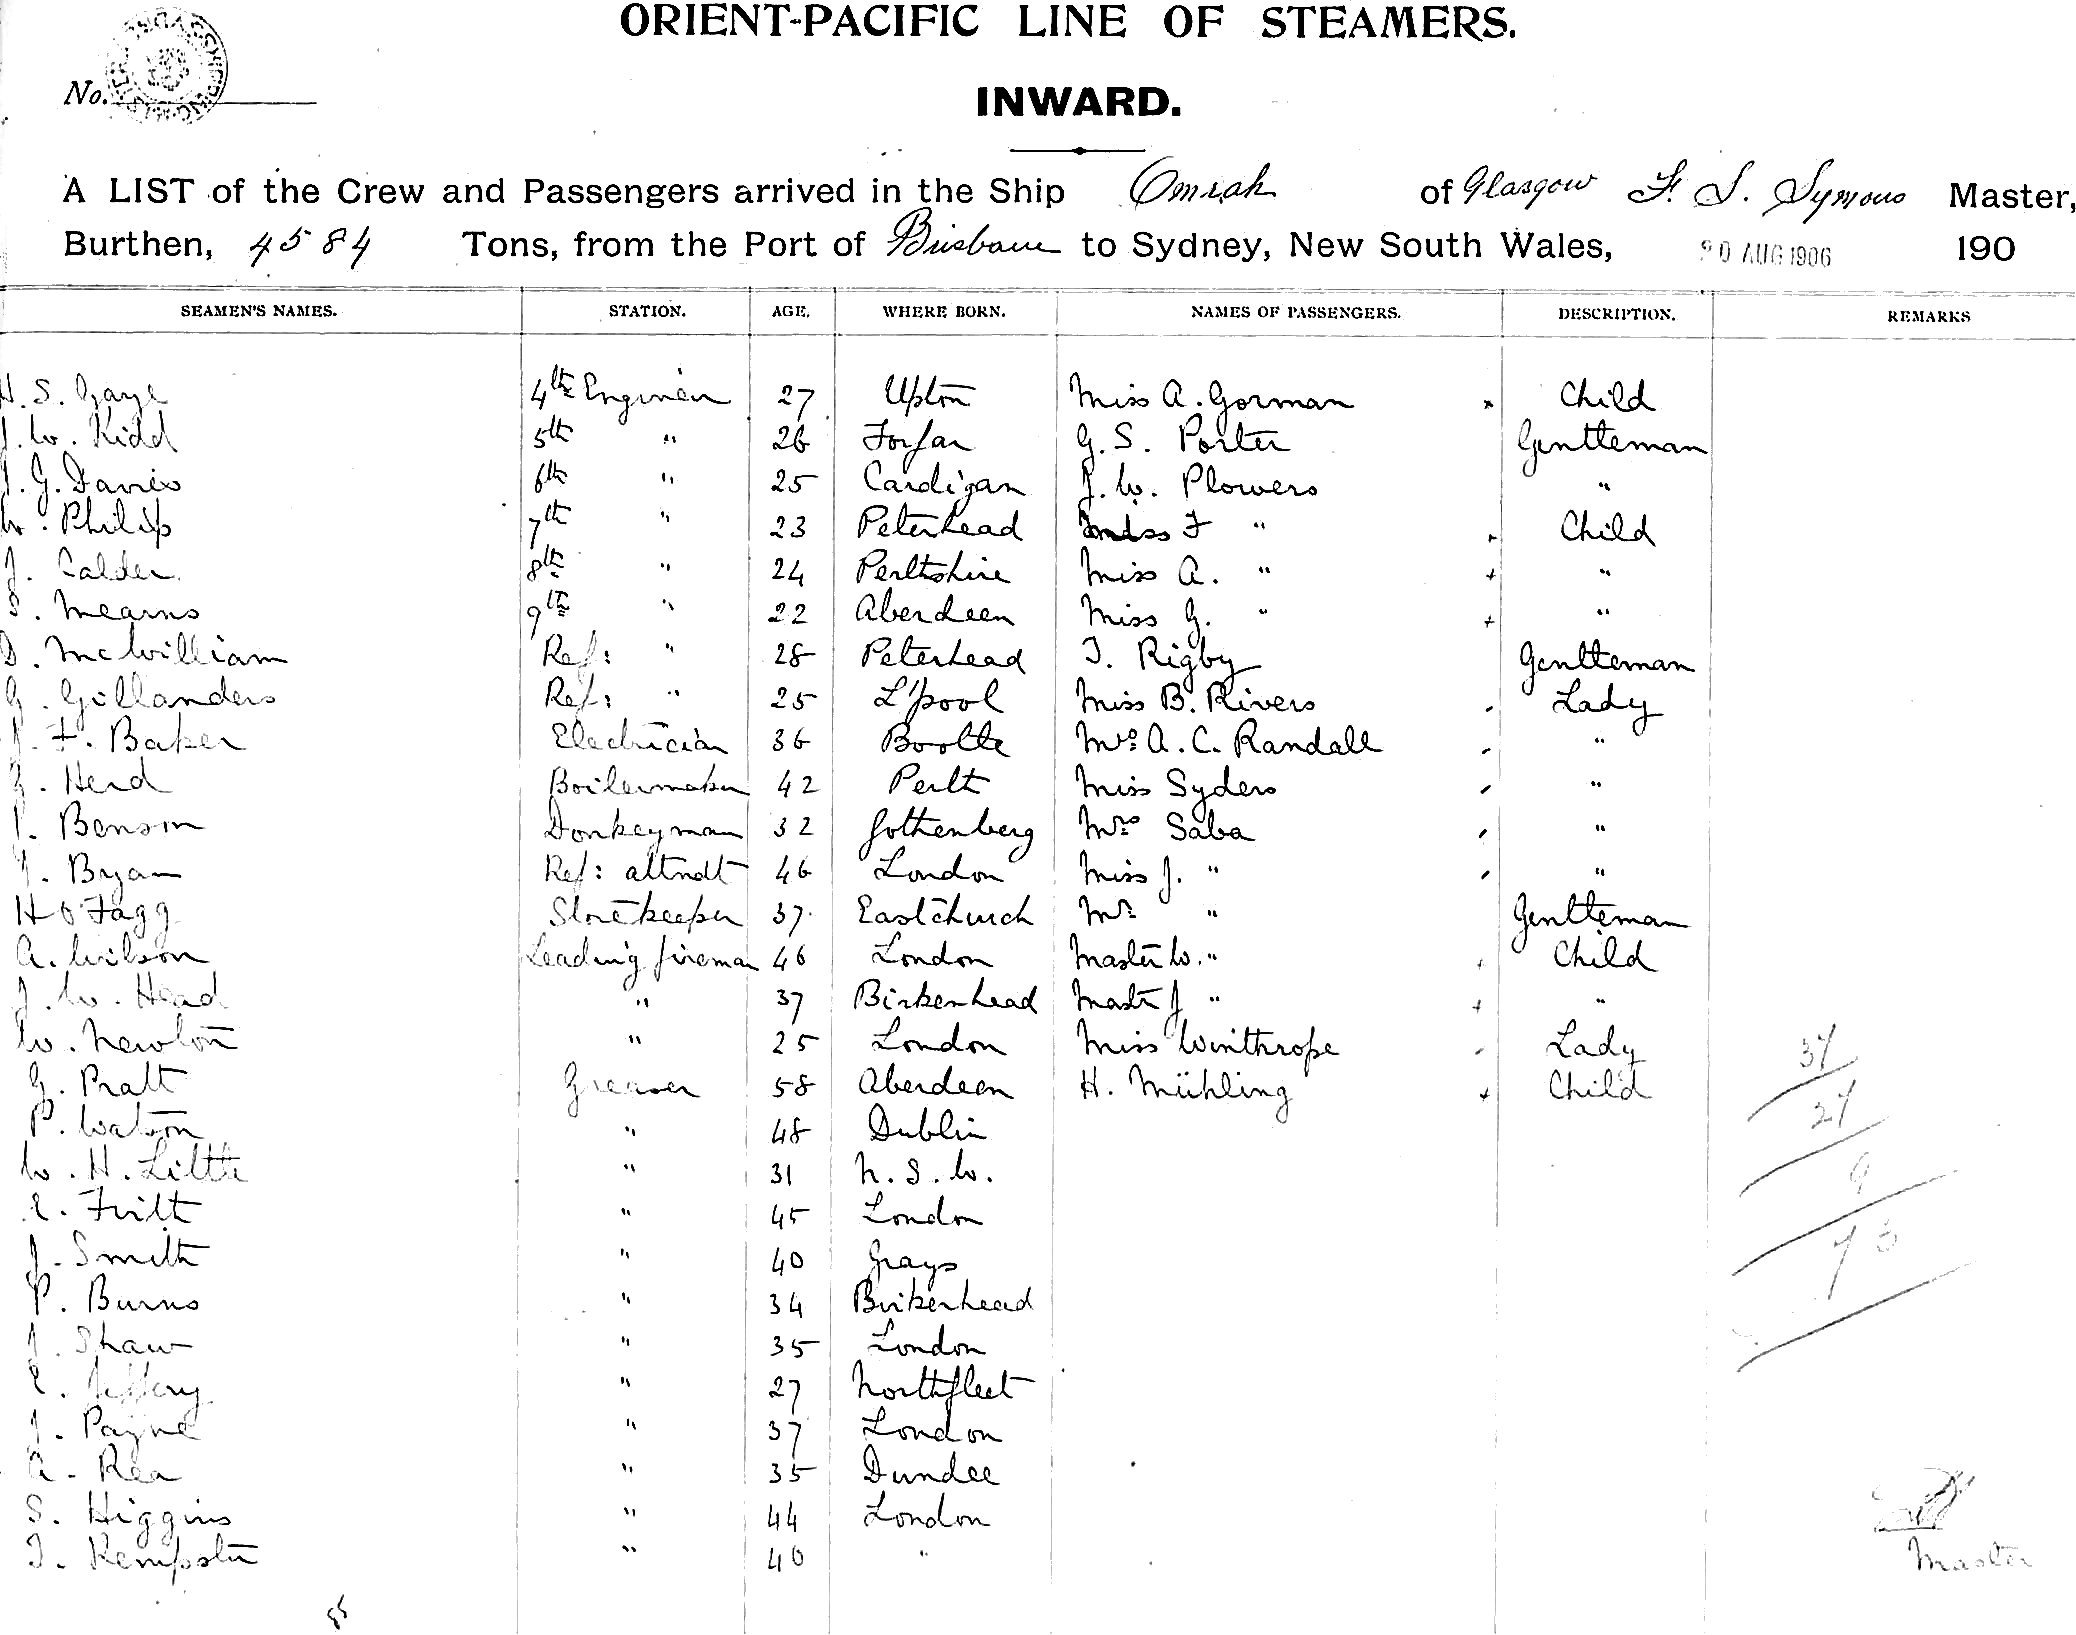 ORIENT-PACIFIC LINE OF STEAMERS.
No.
INWARD.
A LIST of the Crew and Passengers arrived in the Ship Omrah of Glasgow F. S. Symons Master,
Burthen, 4584 Tons, from the Port of Brisbane to Sydney, New South Wales, 20 AUG 1906 190
SEAMEN'S NAMES. STATION. AGE. WHERE BORN. NAMES OF PASSENGERS. DESCRIPTION. REMARKS
H. S. Gaye 4th Engineer 27 Upton Miss A. Gorman Child
J. W. Kidd 5th " 26 Forfar G. S. Porter Gentleman
J. G. Davies 6th " 25 Cardigan J. W. Plowers "
W. Philip 7th " 23 Peterhead Miss F " Child
J. Calder 8th " 24 Perthshire Miss A. " "
S. Mearns 9th " 22 Aberdeen Miss G. " "
D. McWilliam Ref: " 28 Peterhead T. Rigby Gentleman
G. Gillanders Ref: " 25 L'pool Miss B. Rivers Lady
J. F. Baker Electrician 36 Bootle Mrs A. C. Randall "
G. Herd Boilermaker 42 Perth Miss Syders "
Benson Donkeyman 32 Gothenberg Mrs Saba "
J. Bryan Ref: attndt 46 London Miss J. " "
H O Fagg Storekeeper 37 Eastchurch Mr " Gentleman
A. Wilson Leading fireman 46 London Master W. " Child
J. W. Head " 37 Birkenhead Mastr J " "
W. Newton " 25 London Miss Winthrope Lady
G. Pratt Greaser 58 Aberdeen H. Mühling Child
P. Watson " 48 Dublin
W. H. Little " 31 N. S. W.
E. Frith " 45 London
J. Smith " 40 Grays
P. Burns " 34 Birkenhead
J. Shaw " 35 London
E. Jeffery " 27 Northfleet
J. Payne " 37 London
A. Rea " 35 Dundee
S. Higgins " 44 London
T. Kempster " 40 "
37
27
9
73
Master